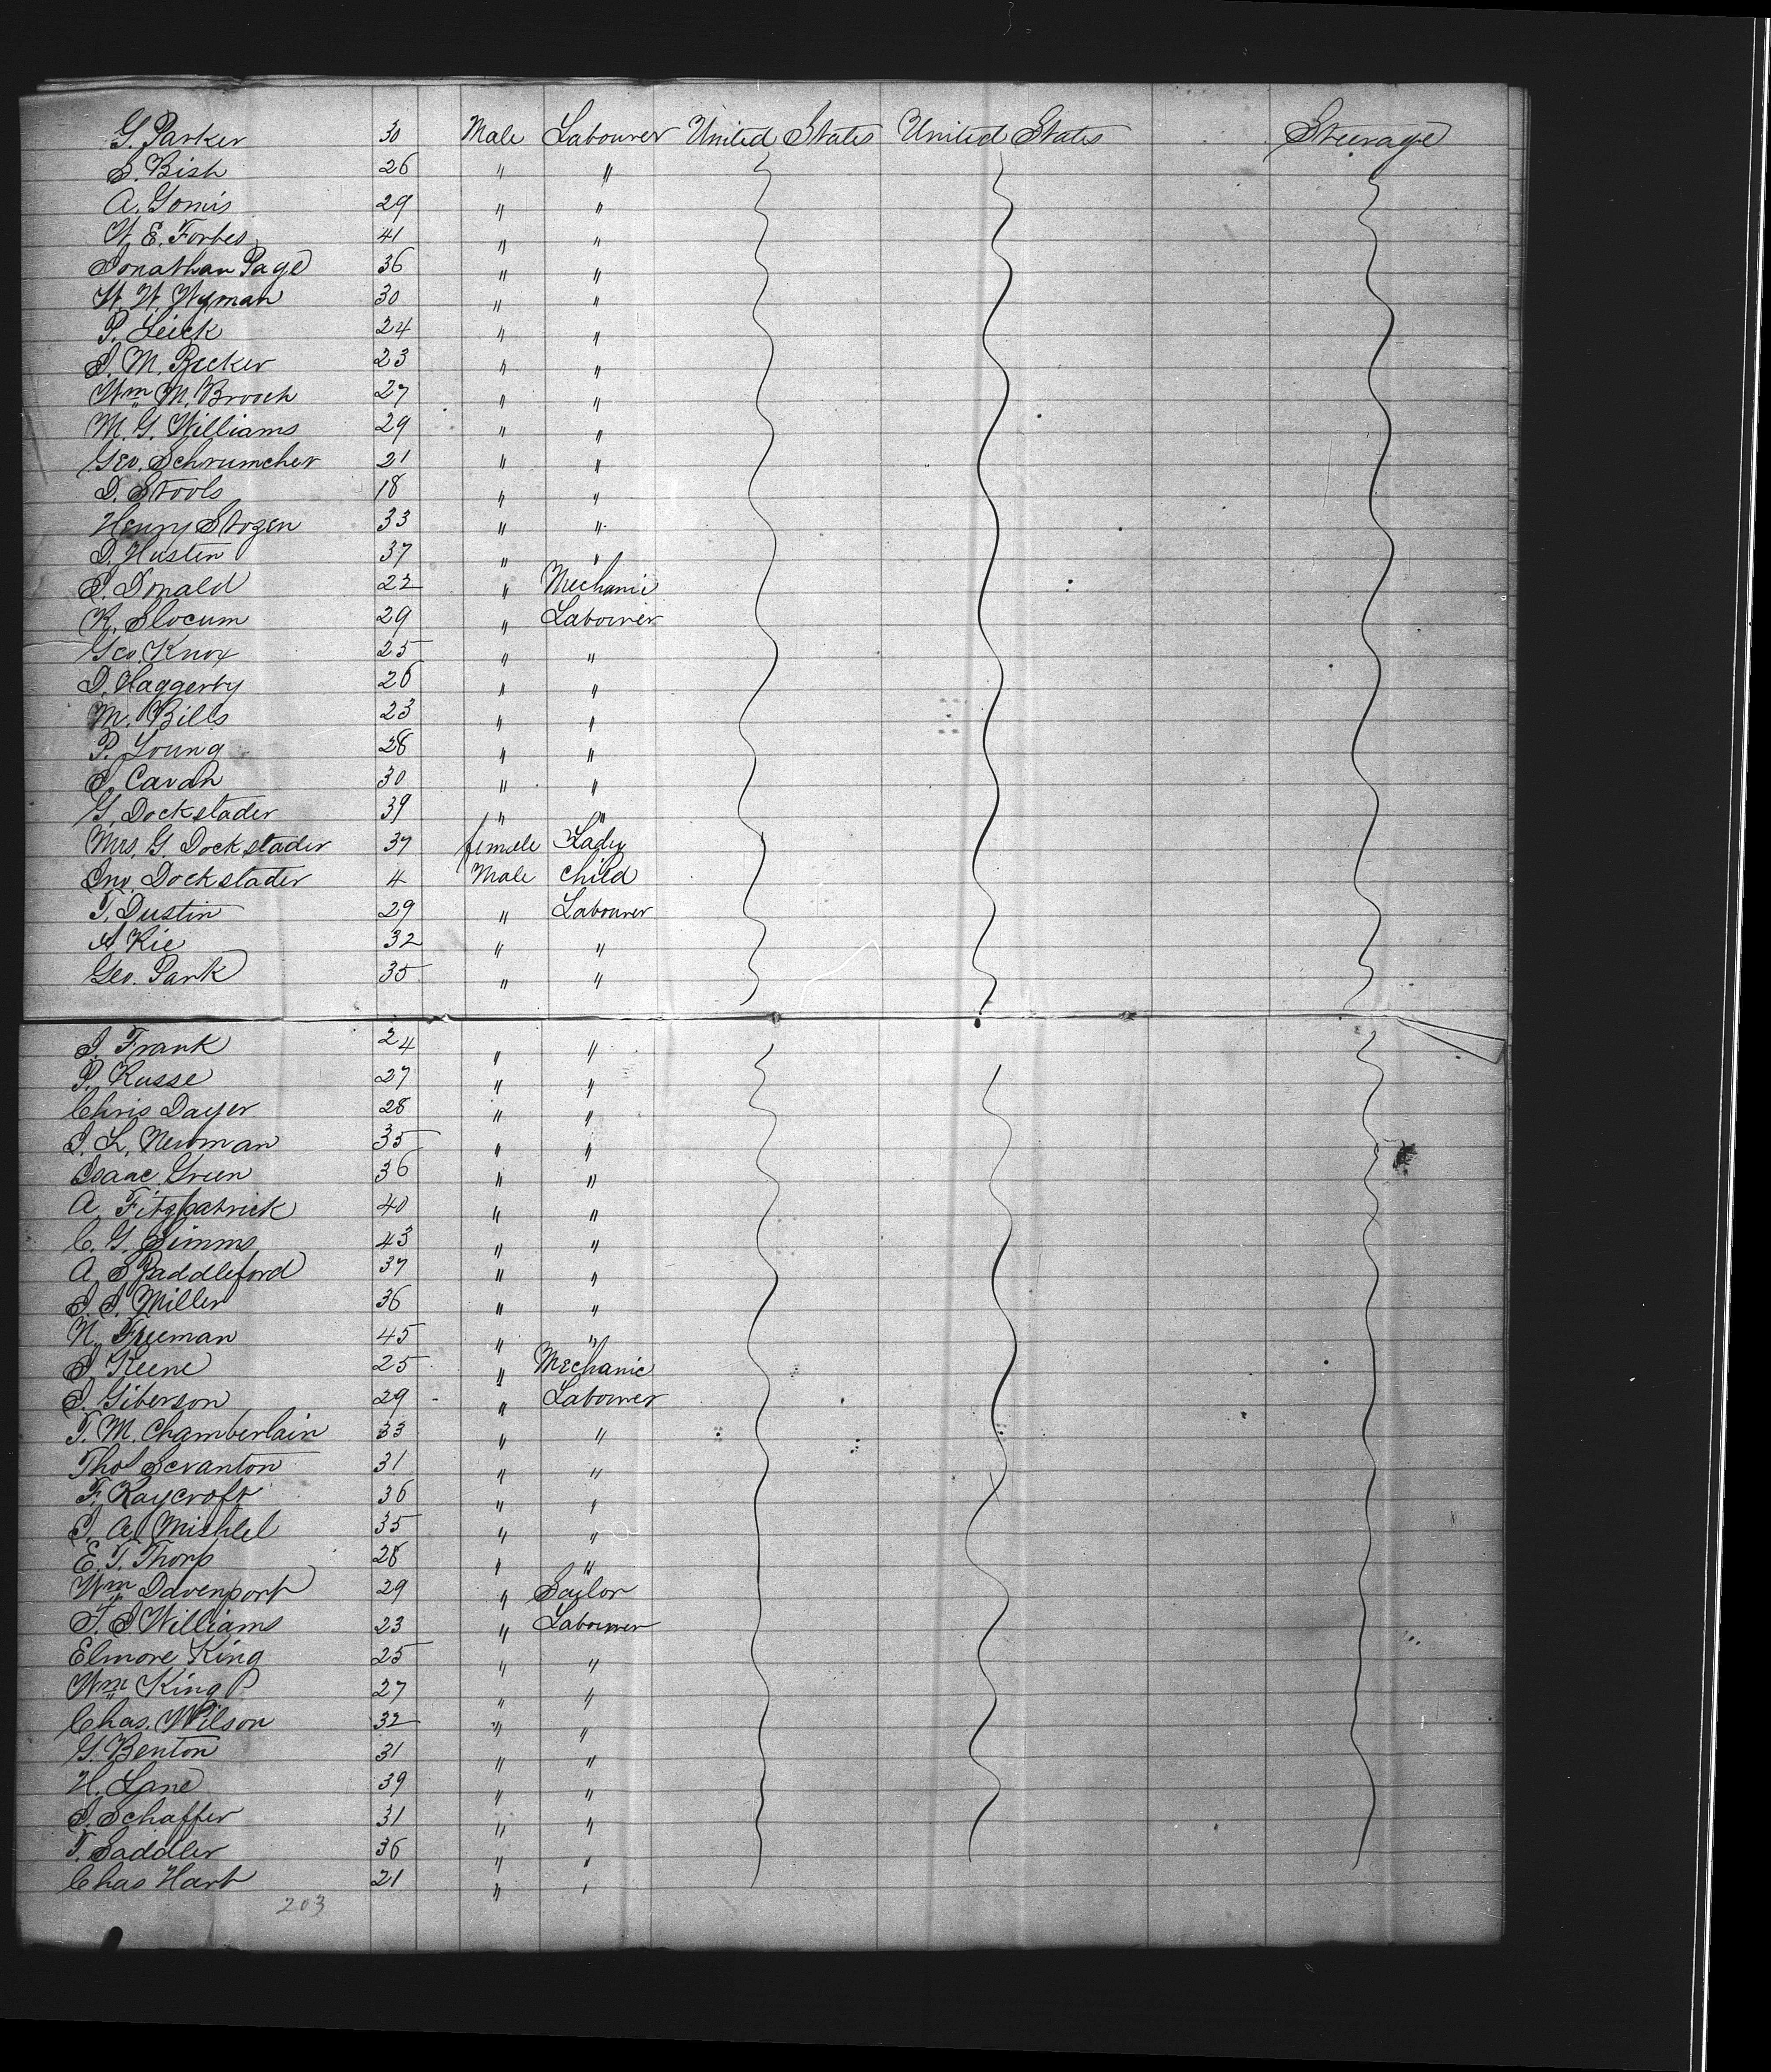 G. Parker 30 Male Labourer United States United States Steerage
S. Bish 26 " "
A. Gomis 29 " "
W. E. Forbes 41 " "
Jonathan Page 36 " "
W. W. Wyman 30 " "
P. Leick 24 " "
J. M. Becker 23 " "
Wm M. Brooch 27 " "
M. G. Williams 29 " "
Geo. Schrumcher 21 " "
D. Stools 18 " "
Henry Stozen 33 " "
D. Husten 37 " "
J. Donald 22 " Mechanic
K. Slocum 29 " Labourer
Geo. Knox 25 " "
D. Haggerty 26 " "
M. Bills 23 " "
P. Young 28 " "
J. Cavah 30 " "
G. Dockstader 39 " "
Mrs. G. Dockstader 37 female Lady
Jno. Dockstader 4 Male Child
T. Dustin 29 " Labourer
A. Kie 32 " "
Geo. Park 35 " "
J. Frank 24 " "
P. Russe 27 " "
Chris Dayer 28 " "
J. L. Newman 35 " "
Isaac Green 36 " "
A. Fitzpatrick 40 " "
C. G. Simms 43 " "
A. S. Paddleford 37 " "
J. J. Miller 36 " "
N. Freeman 45 " "
J. Keene 25 " Mechanic
J. Giberson 29 " Labourer
T. M. Chamberlain 33 " "
Thos Scranton 31 " "
F. Raycroft 36 " "
J. A. Mishlel 35 " "
E. T. Thorp 28 " "
Wm Davenport 29 " Saylor
T. J. Williams 23 " Labourer
Elmore King 25 " "
Wm King 27 " "
Chas. Wilson 32 " "
G. Benton 31 " "
H. Lane 39 " "
J. Schaffer 31 " "
T. Saddler 36 " "
Chas Hart 21 " "
203